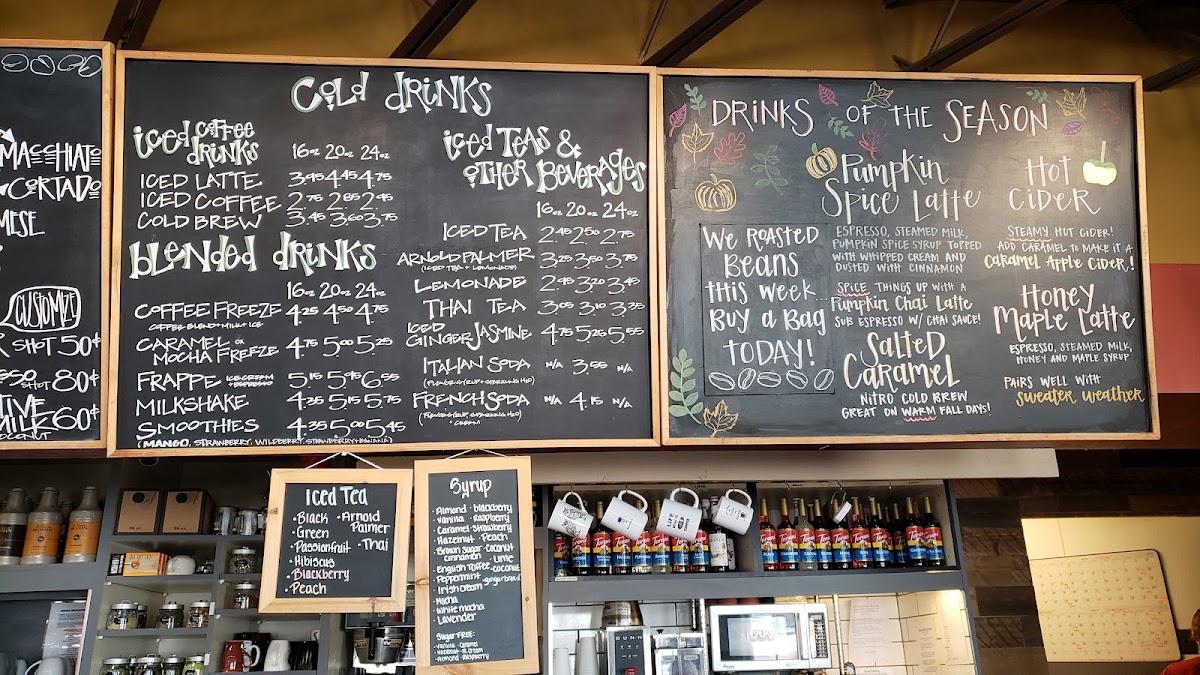 MACCHIATO
CORTADO
CUSTOMIZE
SHOT 50¢
SHOT 80¢
60¢
COLD DRINKS
ICED COFFEE DRINKS
16oz 20oz 24oz
ICED LATTE 3.95 4.45 4.75
ICED COFFEE 2.75 2.85 2.95
COLD BREW 3.45 3.60 3.75
BLENDED DRINKS
16oz 20oz 24oz
COFFEE FREEZE 4.25 4.50 4.75
COFFEE BLEND + MILK + ICE
CARAMEL OR
MOCHA FREEZE 4.75 5.00 5.25
FRAPPE ICE CREAM + ESPRESSO 5.15 5.95 6.55
MILKSHAKE 4.35 5.15 5.75
SMOOTHIES 4.35 5.00 5.45
(MANGO, STRAWBERRY, WILDBERRY, STRAWBERRY + BANANA)
ICED TEAS &
OTHER BEVERAGES
16oz 20oz 24oz
ICED TEA 2.45 2.50 2.75
ARNOLD PALMER 3.25 3.50 3.75
(ICED TEA + LEMONADE)
LEMONADE 2.95 3.20 3.45
THAI TEA 3.05 3.10 3.35
ICED
GINGER JASMINE 4.75 5.25 5.55
ITALIAN SODA N/A 3.55 N/A
(FLAVOR SYRUP + SPARKLING H2O)
FRENCH SODA N/A 4.15 N/A
(FLAVOR SYRUP, SPARKLING H2O
+ CREAM
DRINKS OF THE SEASON
WE ROASTED
BEANS
THIS WEEK...
BUY A BAG
TODAY!
PUMPKIN
SPICE LATTE
ESPRESSO, STEAMED MILK,
PUMPKIN SPICE SYRUP TOPPED
WITH WHIPPED CREAM AND
DUSTED WITH CINNAMON
SPICE THINGS UP WITH A
PUMPKIN CHAI LATTE
SUB ESPRESSO W/ CHAI SAUCE!
SALTED
CARAMEL
NITRO COLD BREW
GREAT ON WARM FALL DAYS!
HOT
CIDER
STEAMY HOT CIDER!
ADD CARAMEL TO MAKE IT A
CARAMEL APPLE CIDER!
HONEY
MAPLE LATTE
ESPRESSO, STEAMED MILK,
HONEY AND MAPLE SYRUP
PAIRS WELL WITH
SWEATER WEATHER
Iced Tea
• Black • Arnold Palmer
• Green • Thai
• Passionfruit
• Hibiscus
• Blackberry
• Peach
Syrup
• Almond • blackberry
• Vanilla • Raspberry
• Caramel • strawberry
• Hazelnut • Peach
• Brown Sugar Cinnamon • Coconut
• Lime
• English Toffee
• Peppermint
• Irish cream
• Mocha
• White mocha
• Lavender
Sugar Free:
• Vanilla • Caramel
• Almond • Raspberry
Torani
BUNN